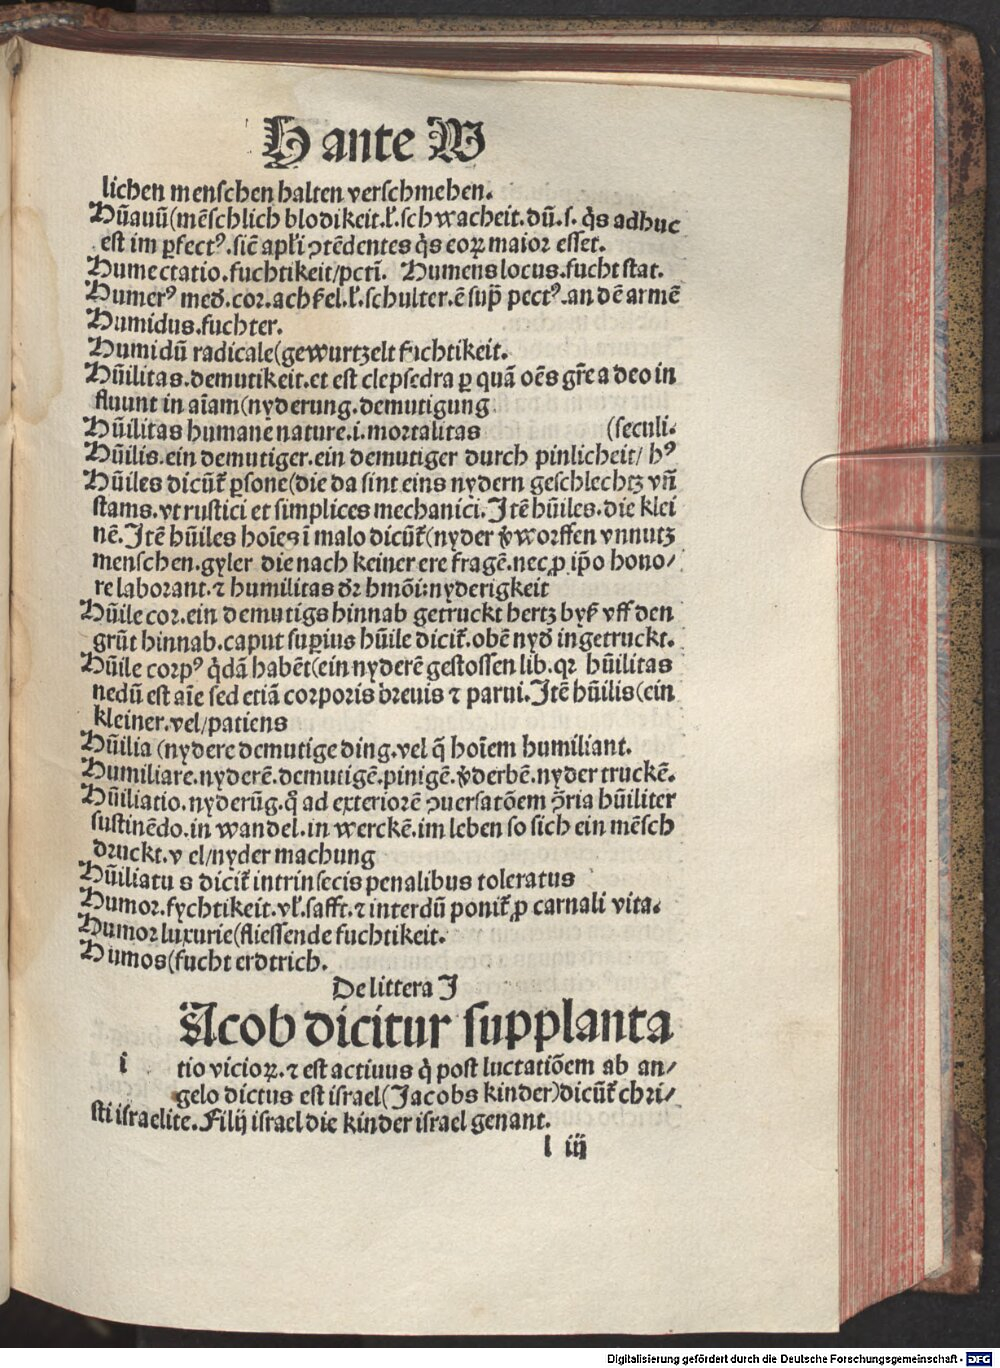 H ante W
lichen menschen halten verschmehen.
Hūanū(mēschlich blodikeit.ł.schwacheit.dū.s.q̄s adhuc
est im ꝑfectꝰ.siē apłi ꝯtēdentes q̄s eoꝝ maior esset.
Humectatio.fuchtikeit/pctī. Humens locus.fucht stat.
Humerꝰ med̄.cor.achsel.ł.schulter.ē sup̄ pectꝰ.an dē armē
Humidus.fuchter.
Humidū radicale(gewurtzelt fuchtikeit.
Hūilitas.demutikeit.et est clepsedra ꝑ quā oēs gr̄e a deo in
fluunt in aīam(nyderung.demutigung
Hūilitas humane nature.i.mortalitas (seculi.
Hūilis.ein demutiger.ein demutiger durch pinlicheit/ hꝰ
Hūiles dicūt̄ ꝑsone(die da sint eins nydern geschlechtz vn̄
stams.vt rustici et simplices mechanici.Itē hūiles.die klei
nē.Itē hūiles hoīes ī malo dicūt̄(nyder v̄worffen vnnutz
menschen.gyler die nach keiner ere fragē.nec ꝓ ip̄o hono/
re laborant.⁊ humilitas dr̄ hmōi:nyderigkeit
Hūile cor.ein demutigs hinnab getruckt hertz byß vff den
grūt hinnab.caput suꝑius hūile dicit̄.obē nyd̄ ingetruckt.
Hūile corpꝰ q̄dā habēt(ein nyderē gestossen lib.qꝛ hūilitas
nedū est aīe sed etiā corporis breuis ⁊ parui.Itē hūilis(ein
kleiner.vel/patiens
Hūilia (nydere demutige ding.vel q̄ hoīem humiliant.
Humiliare.nyderē.demutigē.pinigē.v̄derbē.nyder truckē.
Hūiliatio.nyderūg.qn̄ ad exteriorē ꝯuersatōem ꝯ̄ria hūiliter
sustinēdo.in wandel.in werckē.im leben so sich ein mēsch
druckt.v el/nyder machung
Hūiliatu s dicit̄ intrinsecis penalibus toleratus
Humor.fychtikeit.vł.safft.⁊ interdū ponit̄ ꝓ carnali vita.
Humor luxurie(fliessende fuchtikeit.
Humos(fucht erdtrich.
De littera I
IAcob dicitur supplanta
i tio vicioꝝ.⁊ est actiuus q̄ post luctatiōem ab an/
gelo dictus est israel(Jacobs kinder)dicūt̄ chri/
sti israelite.Filij israel die kinder israel genant.
l iij
Digitalisierung gefördert durch die Deutsche Forschungsgemeinschaft - DFG